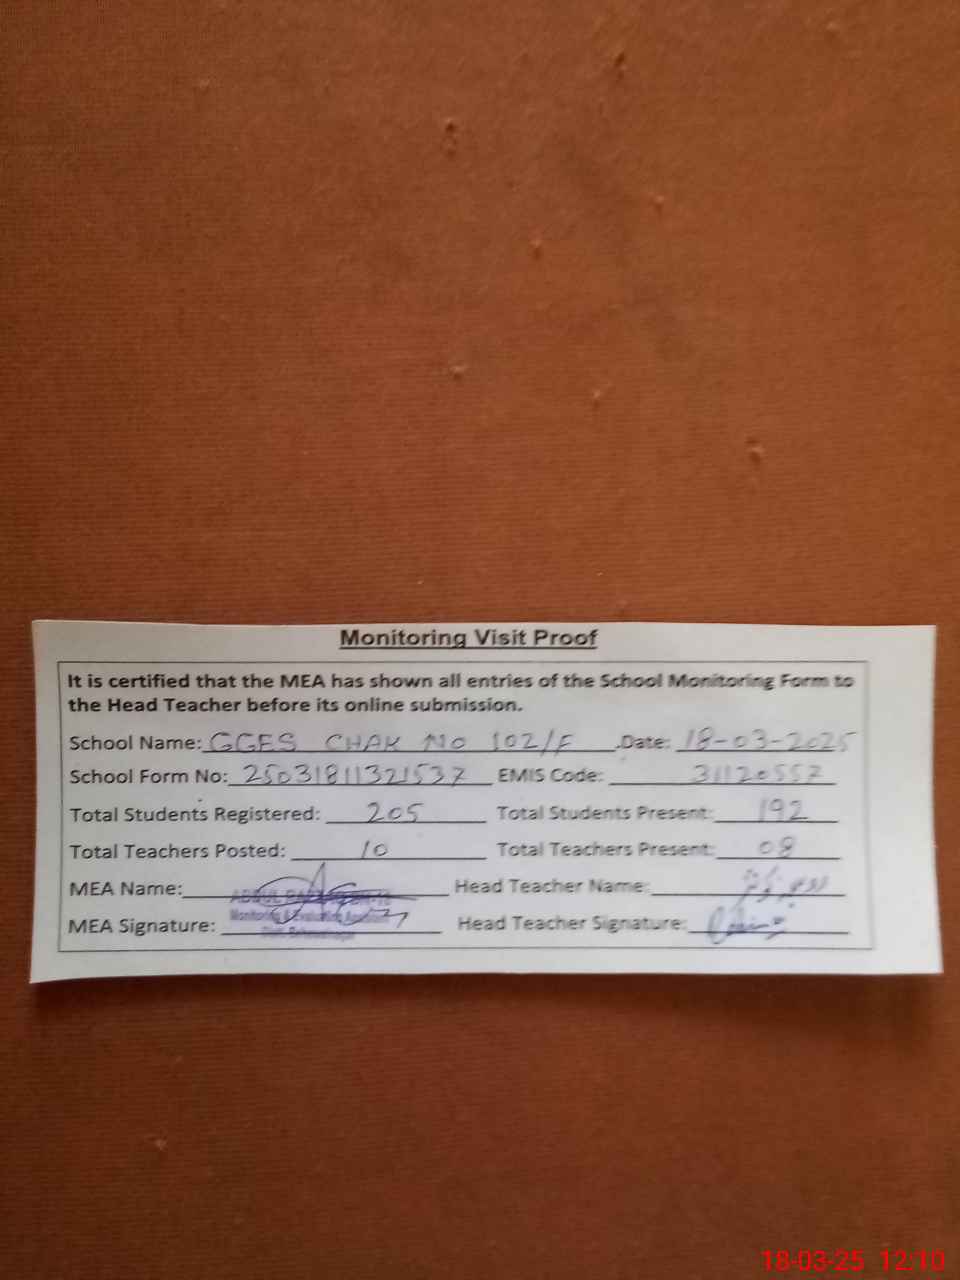 Monitoring Visit Proof
It is certified that the MEA has shown all entries of the School Monitoring Form to
the Head Teacher before its online submission.
School Name: GGES CHAK NO 102/F Date: 18-03-2025
School Form No: 25031811321537 EMIS Code: 31120557
Total Students Registered: 205 Total Students Present: 192
Total Teachers Posted: 10 Total Teachers Present: 08
MEA Name: ABDUL Head Teacher Name:
Monitoring & Evaluation Assistant
MEA Signature: Head Teacher Signature:
18-03-25 12:10